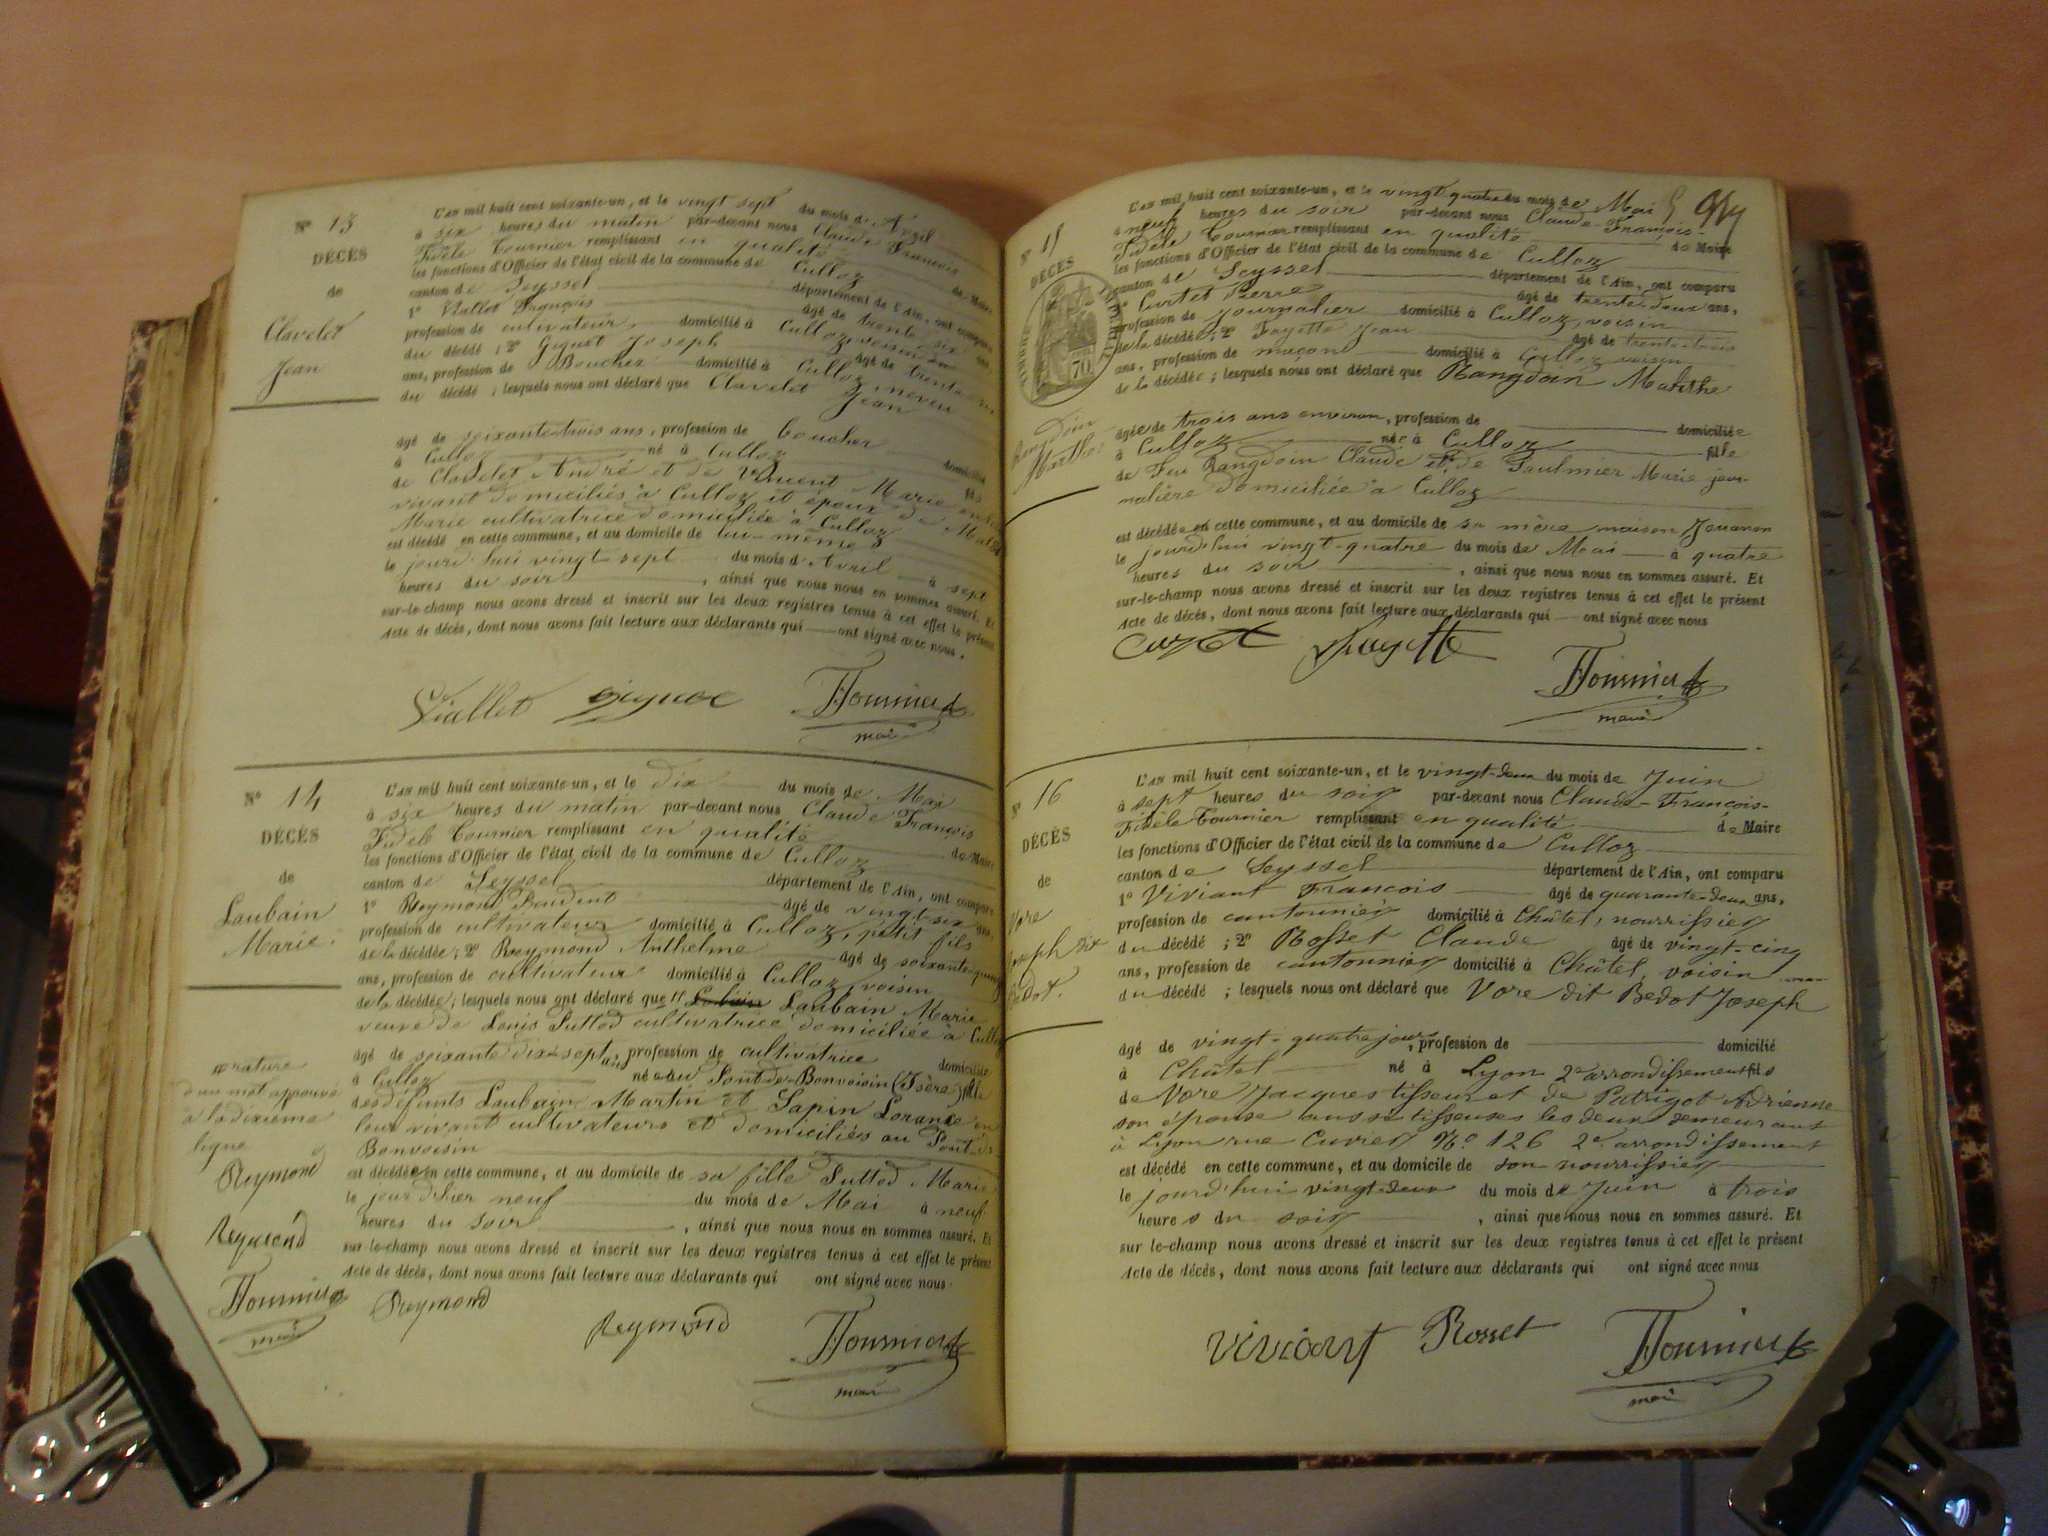 N° 13
DÉCÈS
de
Clavelet
Jean
L'AN mil huit cent soixante-un, et le vingt sept du mois d'Avril
à six heures du matin par-devant nous Claude François
Fidèle Tournier remplissant en qualité de Maire
les fonctions d'Officier de l'état civil de la commune de Culloz
canton de Seyssel département de l'Ain, ont comparu
1° Viallet François âgé de trente six ans,
profession de cultivateur domicilié à Culloz, voisin
du décédé ; 2° Giguet Joseph âgé de trente
ans, profession de Boucher domicilié à Culloz, neveu
du décédé ; lesquels nous ont déclaré que Clavelet
Jean
âgé de soixante-trois ans, profession de boucher domicilié
à Culloz né à Culloz fils
de Clavelet André et de Vincent Marie
vivant domiciliés à Culloz et époux de
Marie cultivatrice domiciliée à Culloz
est décédé en cette commune, et au domicile de lui-même
le jourd'hui vingt sept du mois d'Avril à sept
heures du soir, ainsi que nous nous en sommes assuré. Et
sur-le-champ nous avons dressé et inscrit sur les deux registres tenus à cet effet le présent
Acte de décès, dont nous avons fait lecture aux déclarants qui ont signé avec nous.
Viallet Tournier
N° 14
DÉCÈS
de
Laubain
Marie
L'AN mil huit cent soixante-un, et le dix du mois de Mai
à six heures du matin par-devant nous Claude François
Fidele Tournier remplissant en qualité de Maire
les fonctions d'Officier de l'état civil de la commune de Culloz
canton de Seyssel département de l'Ain, ont comparu
1° Reymond âgé de vingt-six ans,
profession de cultivateur domicilié à Culloz, petit fils
de la décédée ; 2° Reymond Anthelme âgé de soixante-quatre
ans, profession de cultivateur domicilié à Culloz, voisin
de la décédée ; lesquels nous ont déclaré que Laubain Marie
veuve de Louis Suttod cultivatrice domiciliée à Culloz
âgé de soixante dix-sept ans, profession de cultivatrice domiciliée
à Culloz née au Pont-de-Bonvoisin (Isère) fille
des défunts Laubain Martin et Sapin Lorance en
leur vivant cultivateurs et domiciliés au Pont-de
Bonvoisin
est décédée en cette commune, et au domicile de sa fille Suttod Marie
le jour d'hier neuf du mois de Mai à neuf
heures du soir, ainsi que nous nous en sommes assuré. Et
sur-le-champ nous avons dressé et inscrit sur les deux registres tenus à cet effet le présent
Acte de décès, dont nous avons fait lecture aux déclarants qui ont signé avec nous.
rature
d'un mot approuvé
à la dixième
ligne
Reymond
Reymond
Tournier
maire
Reymond Reymond Tournier
maire
N° 15
DÉCÈS
Rangdoin
Marthe
TIMBRE IMPÉRIAL
70
L'AN mil huit cent soixante-un, et le vingt-quatre du mois de Mai
à neuf heures du soir par-devant nous Claude-François-
Fidèle Tournier remplissant en qualité de Maire
les fonctions d'Officier de l'état civil de la commune de Culloz
canton de Seyssel département de l'Ain, ont comparu
1° Curtet Pierre âgé de trente-deux ans,
profession de journalier domicilié à Culloz, voisin
de la décédée ; 2° Fayette Jean âgé de trente-trois
ans, profession de maçon domicilié à Culloz voisin
de la décédée ; lesquels nous ont déclaré que Rangdoin Marthe
âgée de trois ans environ, profession de domiciliée
à Culloz née à Culloz fille
de Feu Rangdoin Claude et de Paulmier Marie jour-
nalière domiciliée à Culloz
est décédée en cette commune, et au domicile de sa mère maison Jouanon
le jourd'hui vingt-quatre du mois de Mai à quatre
heures du soir, ainsi que nous nous en sommes assuré. Et
sur-le-champ nous avons dressé et inscrit sur les deux registres tenus à cet effet le présent
Acte de décès, dont nous avons fait lecture aux déclarants qui ont signé avec nous
Curtet Fayette Tournier
maire
N° 16
DÉCÈS
de
Vore
Joseph dit
Bedot.
L'AN mil huit cent soixante-un, et le vingt-deux du mois de Juin
à sept heures du soir par-devant nous Claude-François-
Fidèle Tournier remplissant en qualité de Maire
les fonctions d'Officier de l'état civil de la commune de Culloz
canton de Seyssel département de l'Ain, ont comparu
1° Viviant François âgé de quarante-deux ans,
profession de cantonnier domicilié à Châtel, nourrissier
du décédé ; 2° Rosset Claude âgé de vingt-cinq
ans, profession de cantonnier domicilié à Châtel, voisin
du décédé ; lesquels nous ont déclaré que Vore dit Bedot Joseph
âgé de vingt-quatre jours, profession de domicilié
à Châtel né à Lyon 2e arrondissement fils
de Vore Jacques tisseur et de Patrigot Adrienne
son épouse aussi tisseuse les deux demeurant
à Lyon rue Cuvier N° 126 2e arrondissement
est décédé en cette commune, et au domicile de son nourrissier
le jourd'hui vingt-deux du mois de Juin à trois
heures du soir, ainsi que nous nous en sommes assuré. Et
sur le-champ nous avons dressé et inscrit sur les deux registres tenus à cet effet le présent
Acte de décès, dont nous avons fait lecture aux déclarants qui ont signé avec nous
Viviant Rosset Tournier
maire